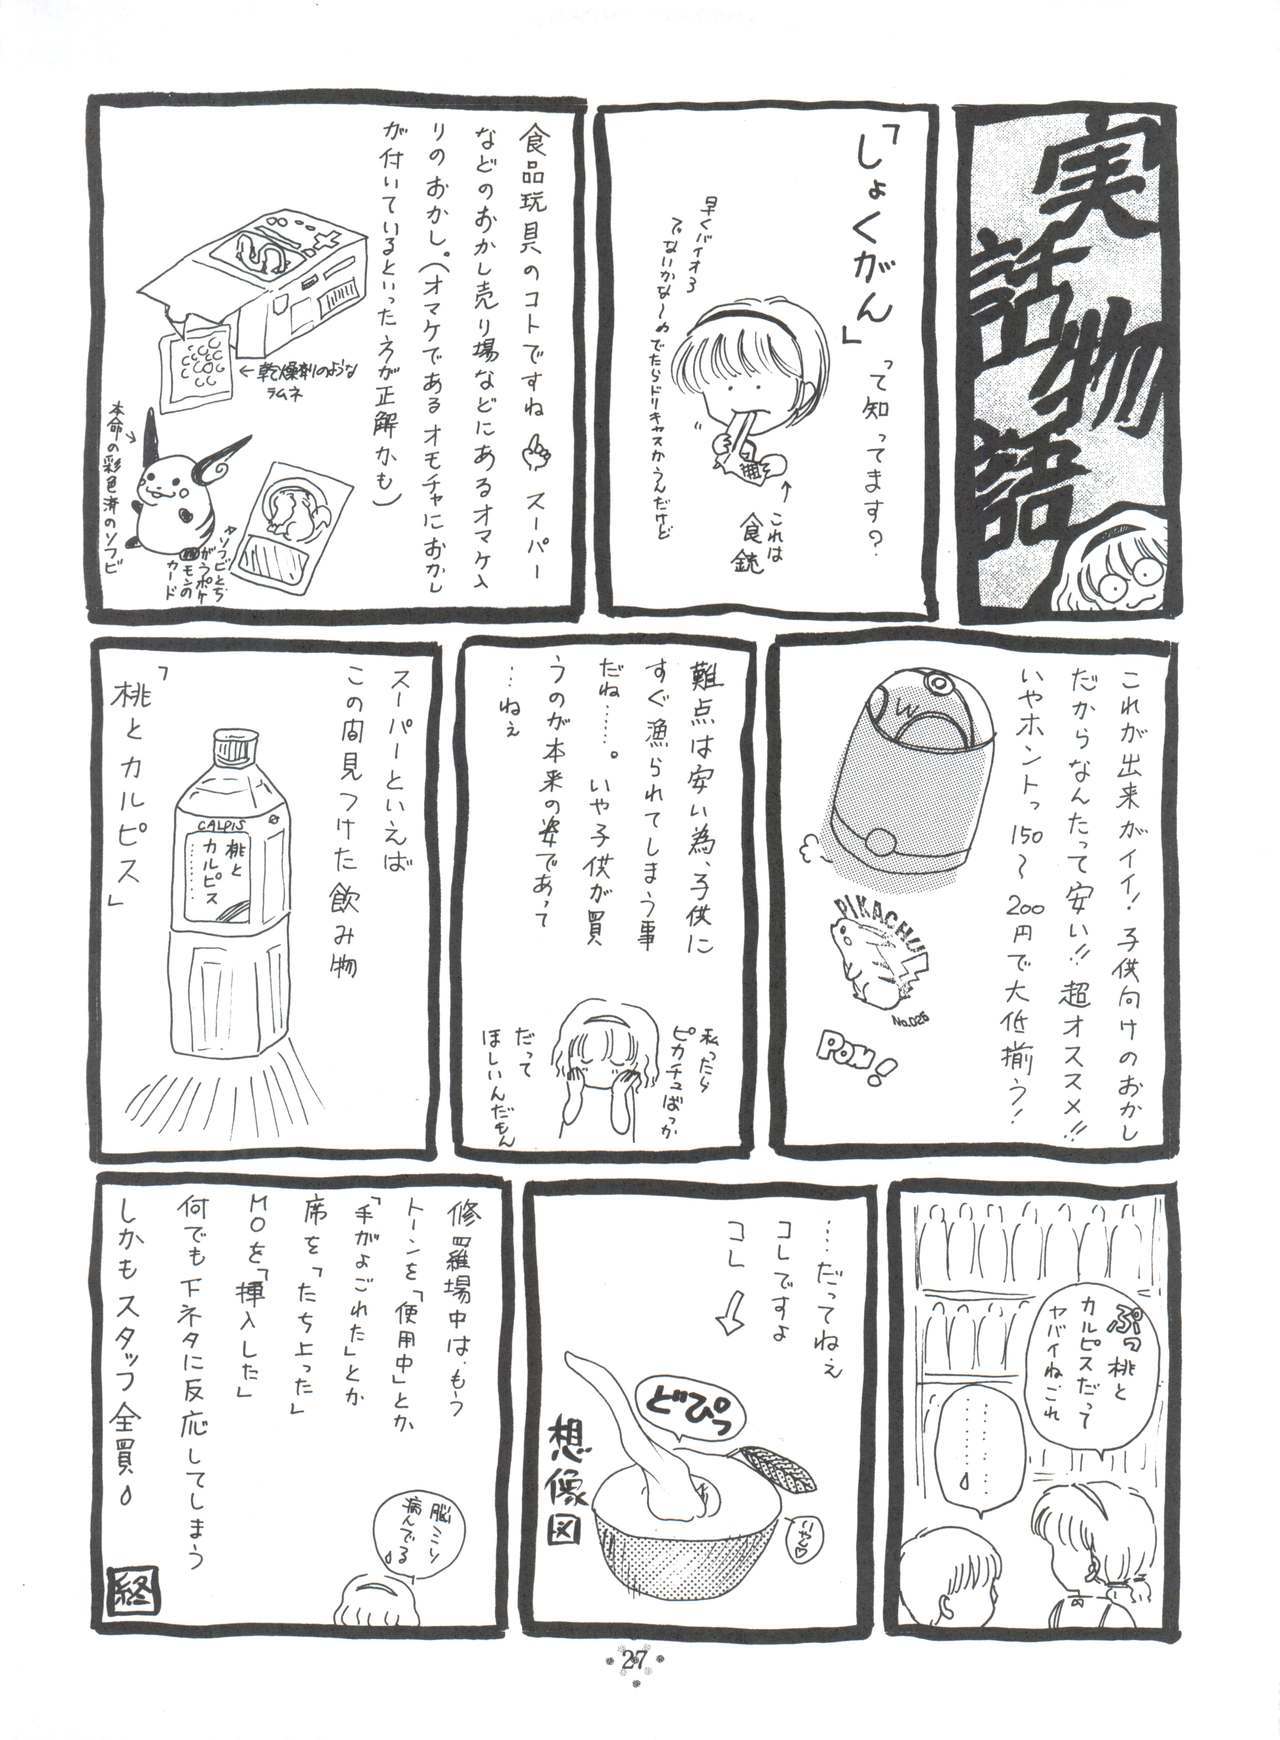 実
話
物
語
「しょくがん」
って知ってます?
早くバイオ3
でないかな〜のでたらドリキャスかうんだけど
↑これは
食銃
食品玩具のコトですね
スーパー
などのおかし売り場などにあるオマケ入
りのおかし。(オマケであるオモチャにおかし
が付いているといった方が正解かも)
←乾燥剤のような
ラムネ
本命の彩色済のソフビ
ソフビとち
がうポケ
モンの
カード
これが出来がイイ!子供向けのおかし
だからなんたって安い!!超オススメ!!
いやホントっ150〜200円で大低揃う!
PIKACHU
No.026
POM!
難点は安い為、子供に
すぐ漁られてしまう事
だね……。いや子供が買
うのが本来の姿であって
…ねぇ
私ったら
ピカチュばっか
だって
ほしいんだもん
スーパーといえば
この間見つけた飲み物
「桃とカルピス」
CALPIS
桃と
カルピス
ぷっ桃と
カルピスだって
ヤバイねこれ
…………
……だってねぇ
コレですよ
コレ
どぴっ
いやん♡
想像図
修羅場中は、もう
トーンを「使用中」とか
「手がよごれた」とか
席を「たち上った」
MOを「挿入した」
何でも下ネタに反応してしまう
しかもスタッフ全員
脳ミソ
病んでる
終
27